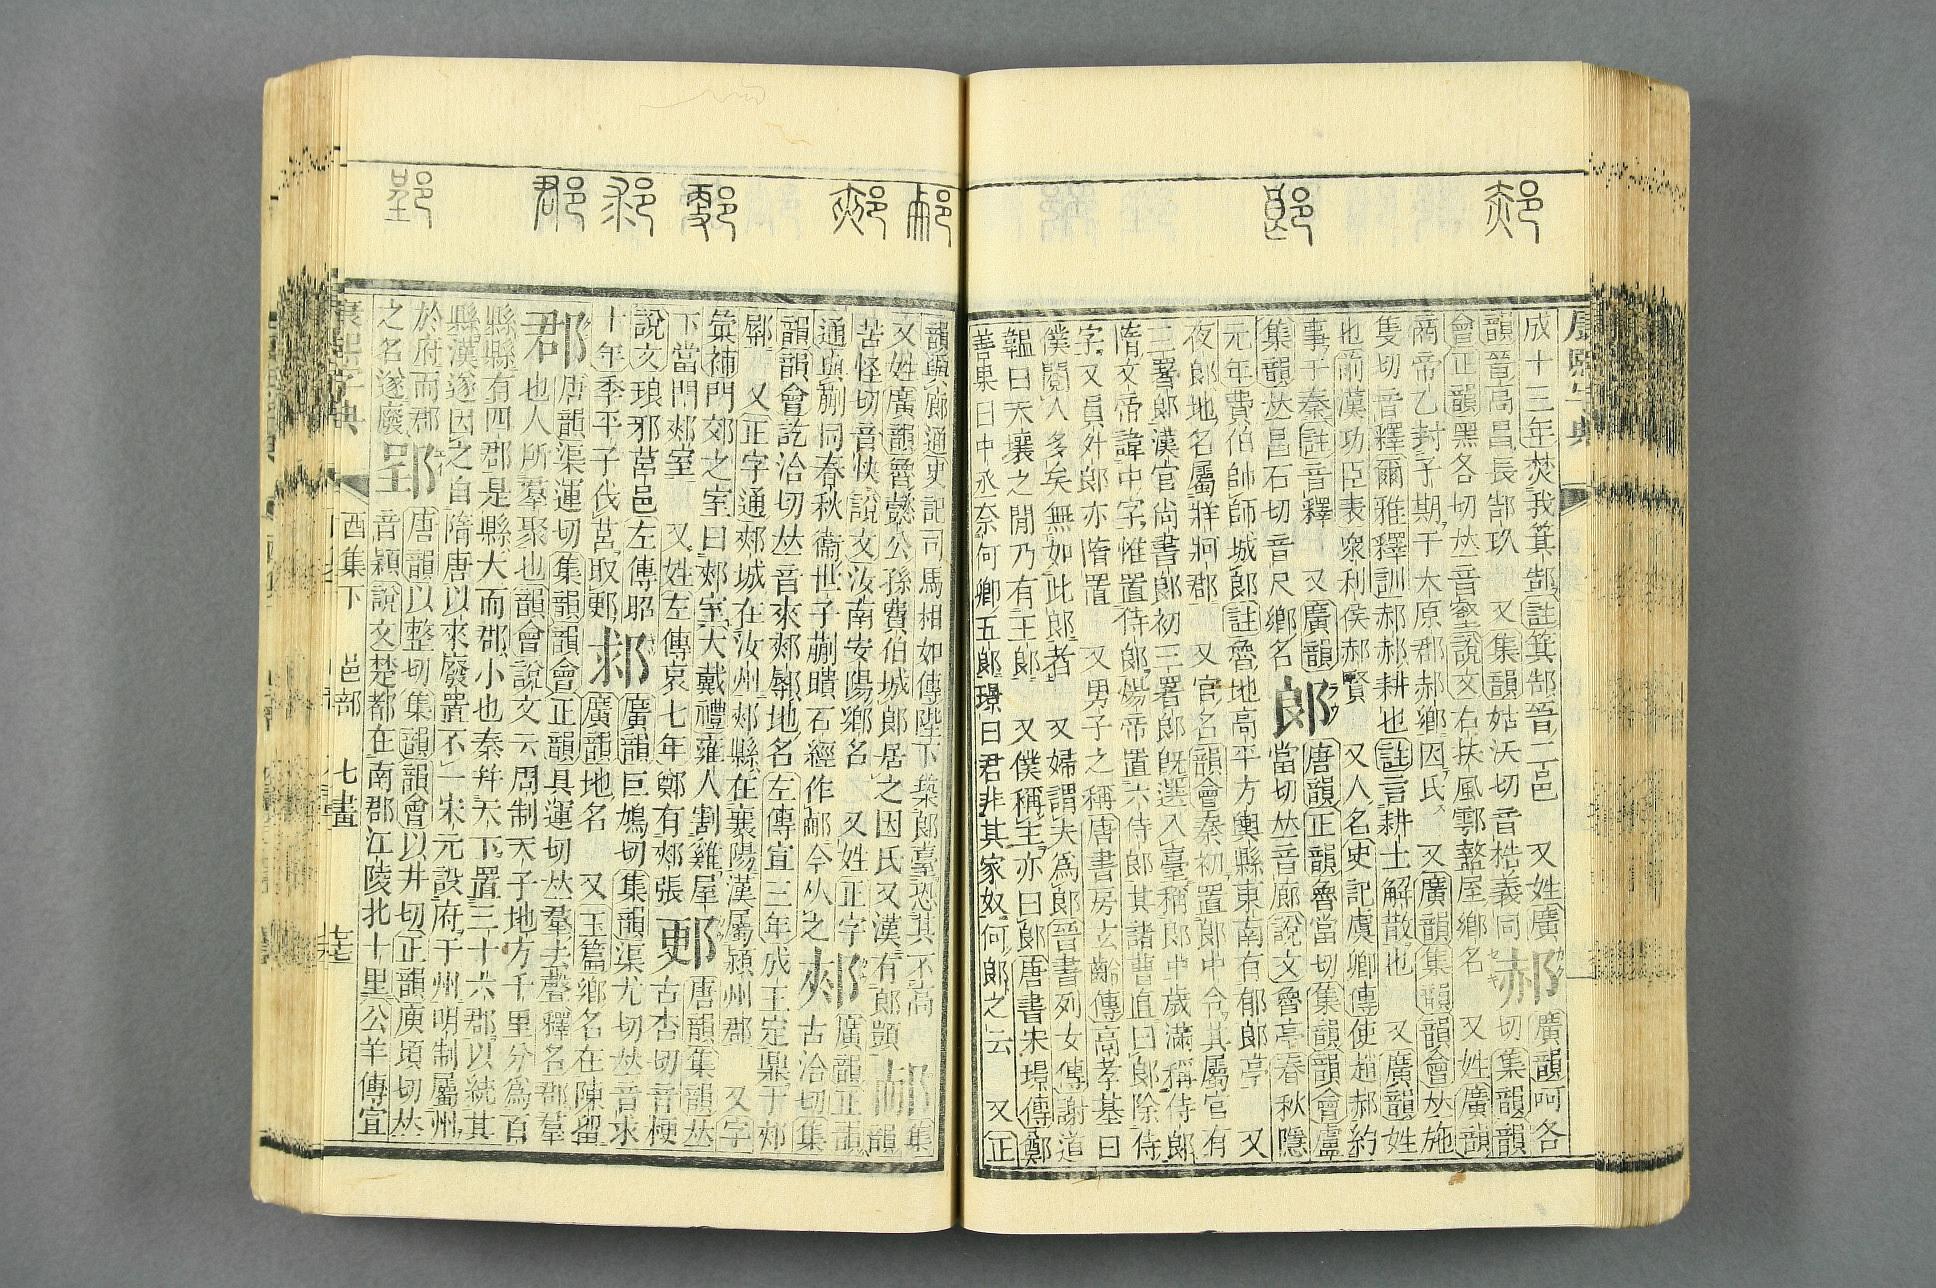 康熙字典
成十三年焚我箕郜註箕郜晉二邑 又姓廣
韻晉高昌長郜玖 又集韻姑沃切音梏義同
郝
廣韻呵各
切集韻韻
會正韻黑各切𠀤音壑說文右扶風鄠盩厔鄉名 又姓廣韻
商帝乙封子期于太原郡郝鄉因氏 又廣韻集韻韻會𠀤施
隻切音釋爾雅釋訓郝郝耕也註言耕土解散也 又廣韻姓
也前漢功臣表衆利侯郝賢 又人名史記虞卿傳使趙郝約
事于秦註音釋 又廣韻
集韻𠀤昌石切音尺鄉名
郎
唐韻正韻魯當切集韻韻會盧
當切𠀤音廊說文魯亭春秋隱
元年費伯帥師城郎註魯地高平方輿縣東南有郁郎亭 又
夜郎地名屬牂牁郡 又官名韻會秦初置郎中令其屬官有
三署郎漢官尚書郎初三署郎既選入臺稱郎中歲滿稱侍郎
隋文帝諱中字惟置侍郎煬帝置六侍郎其諸曹直曰郎除侍
字又員外郎亦隋置 又男子之稱唐書房玄齡傳高孝基曰
僕閱人多矣無如此郎者 又婦謂夫爲郎晉書列女傳謝道
韞曰天壤之閒乃有王郎 又僕稱主亦曰郎唐書宋璟傳鄭
善果曰中丞奈何卿五郎璟曰君非其家奴何郎之云 又正
韻與廊通史記司馬相如傳陛下築郎臺恐其不高
又姓廣韻魯懿公孫費伯城郎居之因氏又漢有郎顗
集
韻
苦怪切音快說文汝南安陽鄉名 又姓正字
通與蒯同春秋衞世子蒯聵石經作 今从之
郟
廣韻正韻
古洽切集
韻韻會訖洽切𠀤音夾郟鄏地名左傳宣三年成王定鼎于郟
鄏 又正字通郟城在汝州郟縣在襄陽漢屬潁州郡 又字
彙補門郊之室曰郟室大戴禮雍人割雞屋
下當門郟室 又姓左傳哀七年鄭有郟張
郠
唐韻集韻𠀤
古杏切音梗
說文琅邪莒邑左傳昭
十年季平子伐莒取郠
廣韻巨鳩切集韻渠尤切𠀤音求
廣韻地名 又玉篇鄉名在陳留
郡
唐韻渠運切集韻韻會正韻具運切𠀤羣去聲釋名郡羣
也人所羣聚也韻會說文云周制天子地方千里分爲百
縣縣有四郡是縣大而郡小也秦幷天下置三十六郡以統其
縣漢遂因之自隋唐以來廢置不一宋元設府于州明制屬州
於府而郡
之名遂廢
郢
唐韻以整切集韻韻會以井切正韻庾頃切𠀤
音穎說文楚都在南郡江陵北十里公羊傳宣
康熙字典 酉集下 邑部 七畫